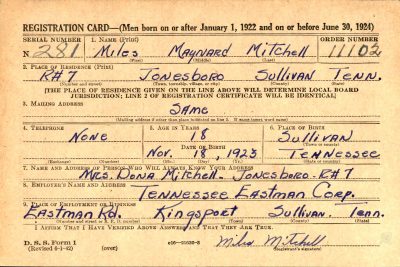 REGISTRATION CARD—(Men born on or after January 1, 1922 and on or before June 30, 1924)
SERIAL NUMBER 1. NAME (Print) ORDER NUMBER
N 281 Miles Maynard Mitchell 11102
(First) (Middle) (Last)
2. PLACE OF RESIDENCE (Print)
R#7 Jonesboro Sullivan Tenn.
(Number and street) (Town, township, village, or city) (County) (State)
[THE PLACE OF RESIDENCE GIVEN ON THE LINE ABOVE WILL DETERMINE LOCAL BOARD
JURISDICTION; LINE 2 OF REGISTRATION CERTIFICATE WILL BE IDENTICAL]
3. MAILING ADDRESS
Same
(Mailing address if other than place indicated on line 2. If same insert word same)
4. TELEPHONE 5. AGE IN YEARS 6. PLACE OF BIRTH
None 18 Sullivan
DATE OF BIRTH (Town or county)
Nov. 18, 1923 Tennessee
(Exchange) (Number) (Mo.) (Day) (Yr.) (State or country)
7. NAME AND ADDRESS OF PERSON WHO WILL ALWAYS KNOW YOUR ADDRESS
Mrs. Dona Mitchell - Jonesboro - R#7
8. EMPLOYER'S NAME AND ADDRESS
Tennessee Eastman Corp.
9. PLACE OF EMPLOYMENT OR BUSINESS
Eastman Rd. Kingsport Sullivan Tenn.
(Number and street or R. F. D. number) (Town) (County) (State)
I AFFIRM THAT I HAVE VERIFIED ABOVE ANSWERS AND THAT THEY ARE TRUE.
D. S. S. Form 1 Miles Mitchell
(Revised 6-1-42) (over) (Registrant's signature)